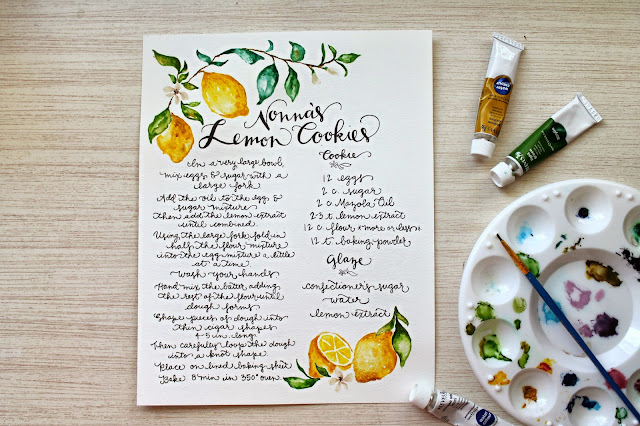 Nonna's
Lemon Cookies
In a very large bowl,
mix eggs & sugar with a
large fork
Add the oil to the egg &
sugar mixture
then add the lemon extract
until combined.
Using the large fork, fold in
half the flour mixture
into the egg mixture a little
at a time.
Wash your hands
Hand mix the batter, adding
the rest of the flour until
dough forms
Shape pieces of dough into
thin cigar shapes
4-5 in long.
Then carefully loop the dough
into a knot shape.
Place on lined baking sheet
Bake 8 min in 350° oven
Cookie
12 eggs
2 c. sugar
2 c Mazola Oil
2-3 t. lemon extract
12 c. flour *more or less*
12 t. baking powder
Glaze
confectioner's sugar
water
lemon extract